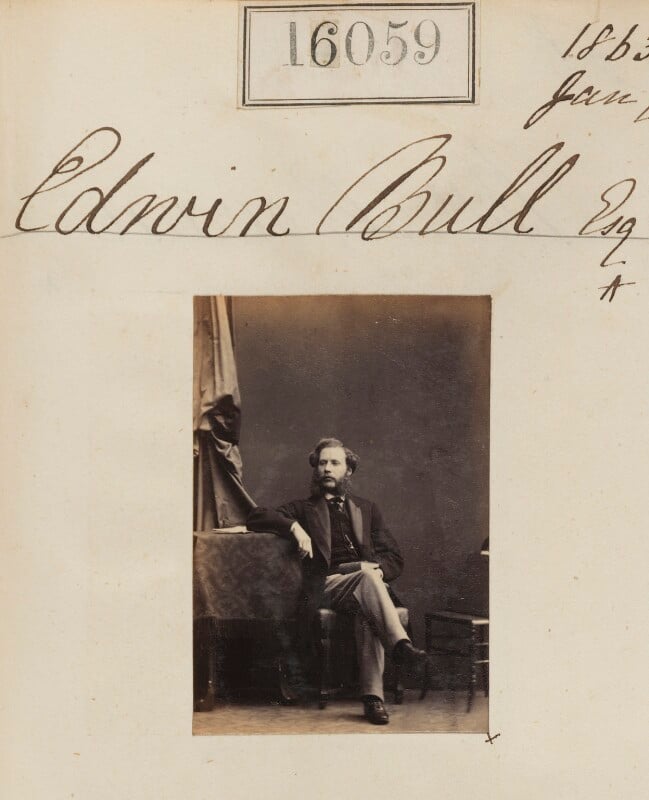 16059
1863
Jan
Edwin Bull Esq
A
x